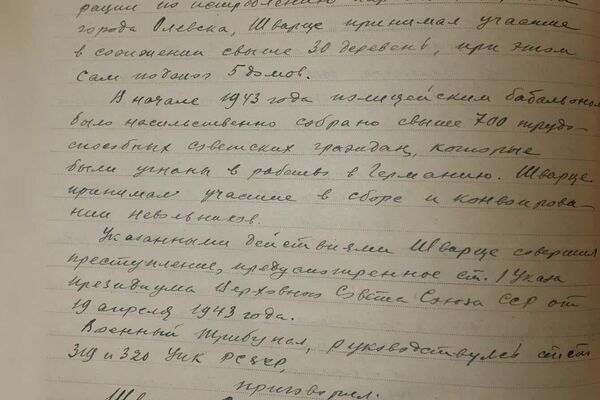 рации по истреблению пар
города Олевска, Шварце принимал участие
в сожжении свыше 30 деревень, при этом
сам поджог 5 домов.
В начале 1943 года полицейским батальоном
было насильственно собрано свыше 700 трудо-
способных советских граждан, которые
были угнаны в рабство в Германию. Шварце
принимал участие в сборе и конвоирова-
нии невольников.
Указанными действиями Шварце совершил
преступление, предусмотренное ст. 1 Указа
Президиума Верховного Совета Союза ССР от
19 апреля 1943 года.
Военный Трибунал, руководствуясь ст.ст.
319 и 320 УПК РСФСР,
приговорил: